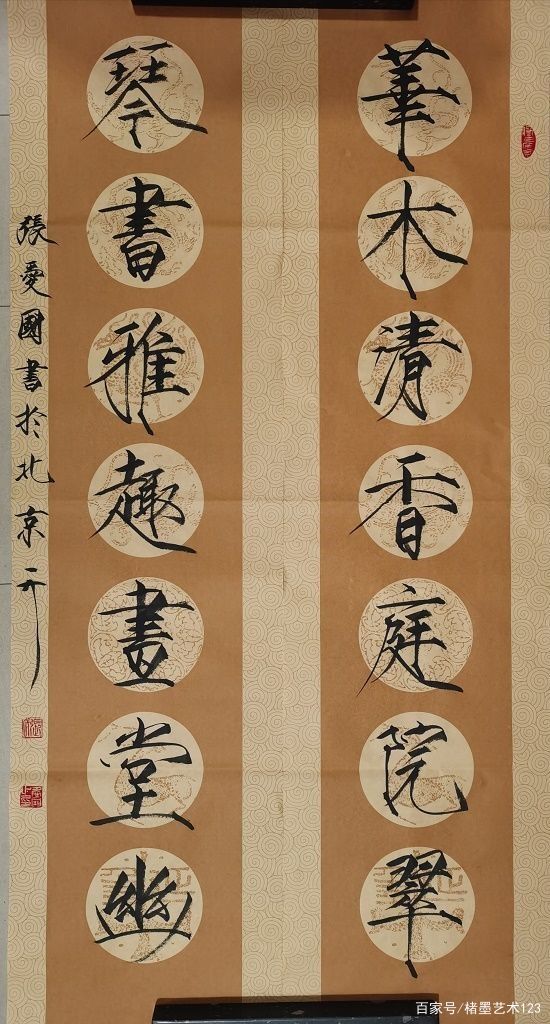 華木清香庭院翠
琴書雅趣畫堂幽
張愛國書於北京
百家号/楮墨艺术123